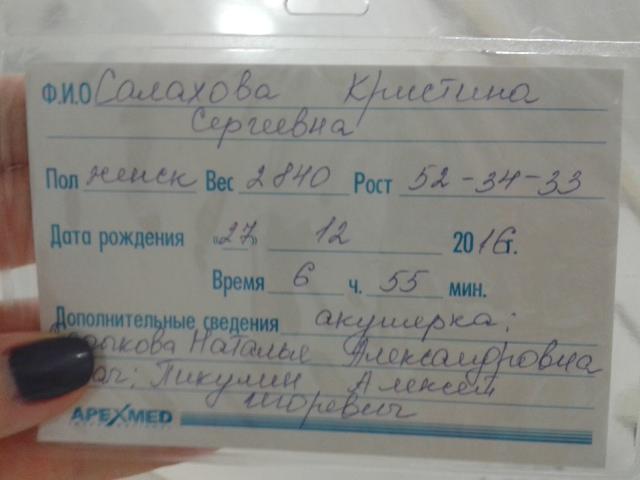 Ф.И.О Салахова Кристина
Сергеевна
Пол женск Вес 2840 Рост 52-34-33
Дата рождения «27» 12 2016г.
Время 6 ч. 55 мин.
Дополнительные сведения акушерка:
Наталья Александровна
Пикулин Алексей
Игоревич
APEXMED